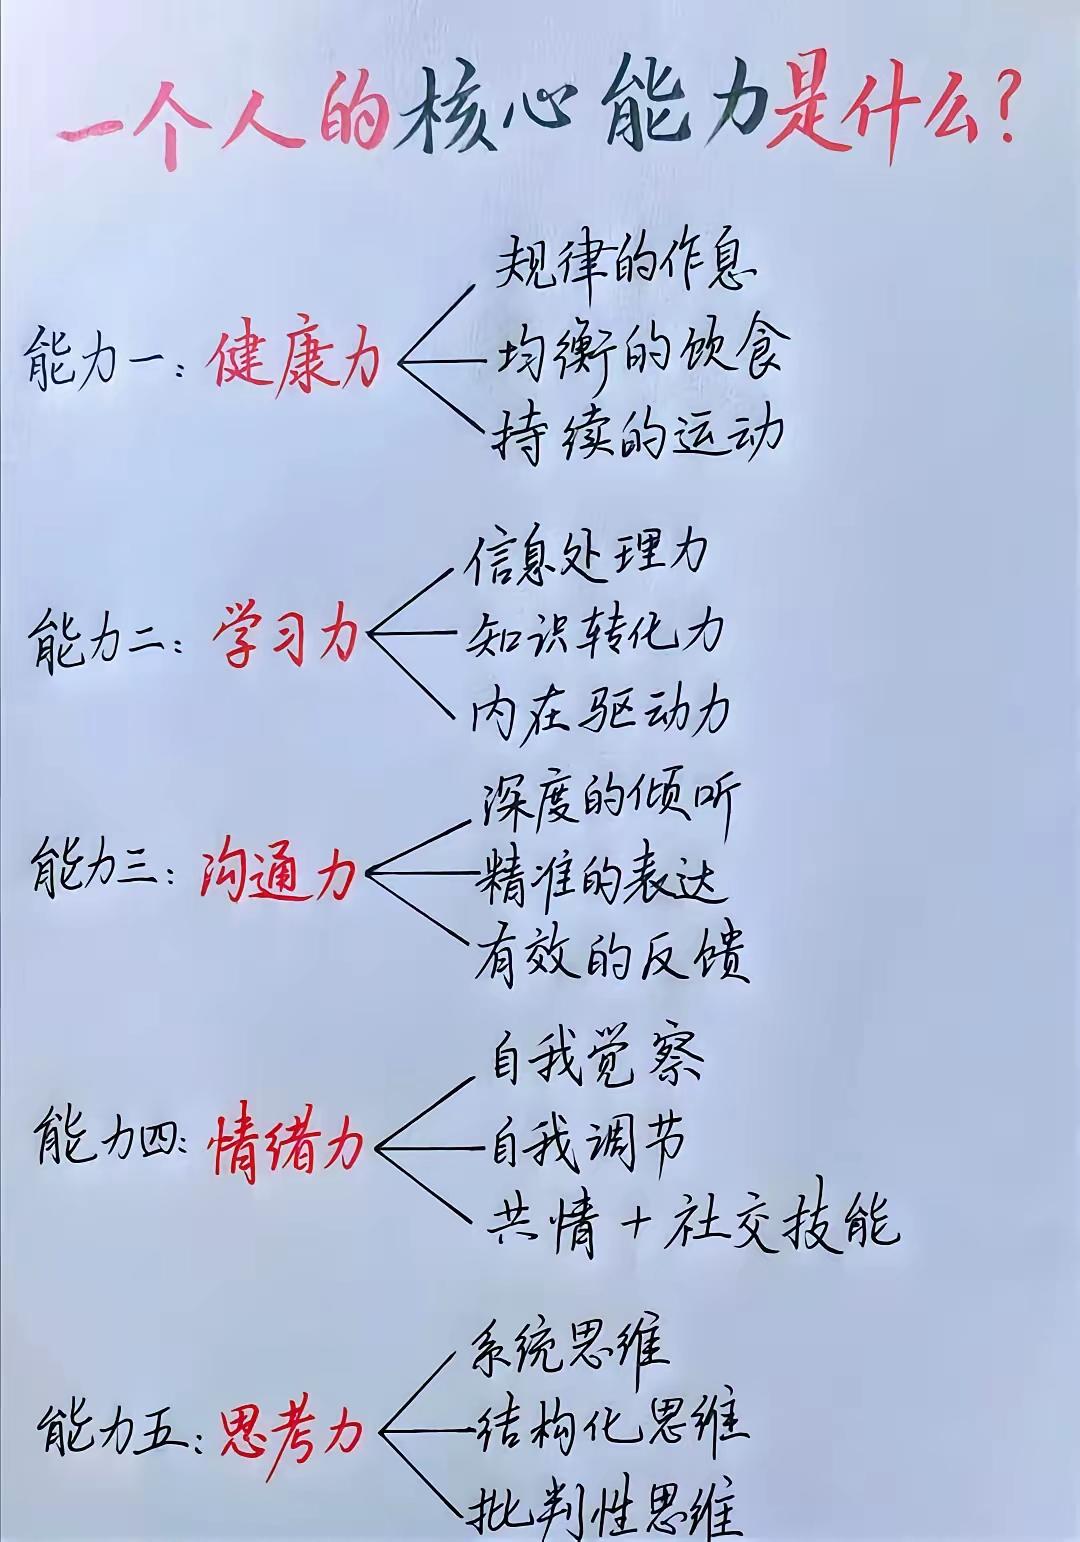 一个人的核心能力是什么?
规律的作息
能力一:健康力
均衡的饮食
持续的运动
信息处理力
能力二:学习力
知识转化力
内在驱动力
深度的倾听
能力三:沟通力
精准的表达
有效的反馈
自我觉察
能力四:情绪力
自我调节
共情+社交技能
系统思维
能力五:思考力
结构化思维
批判性思维